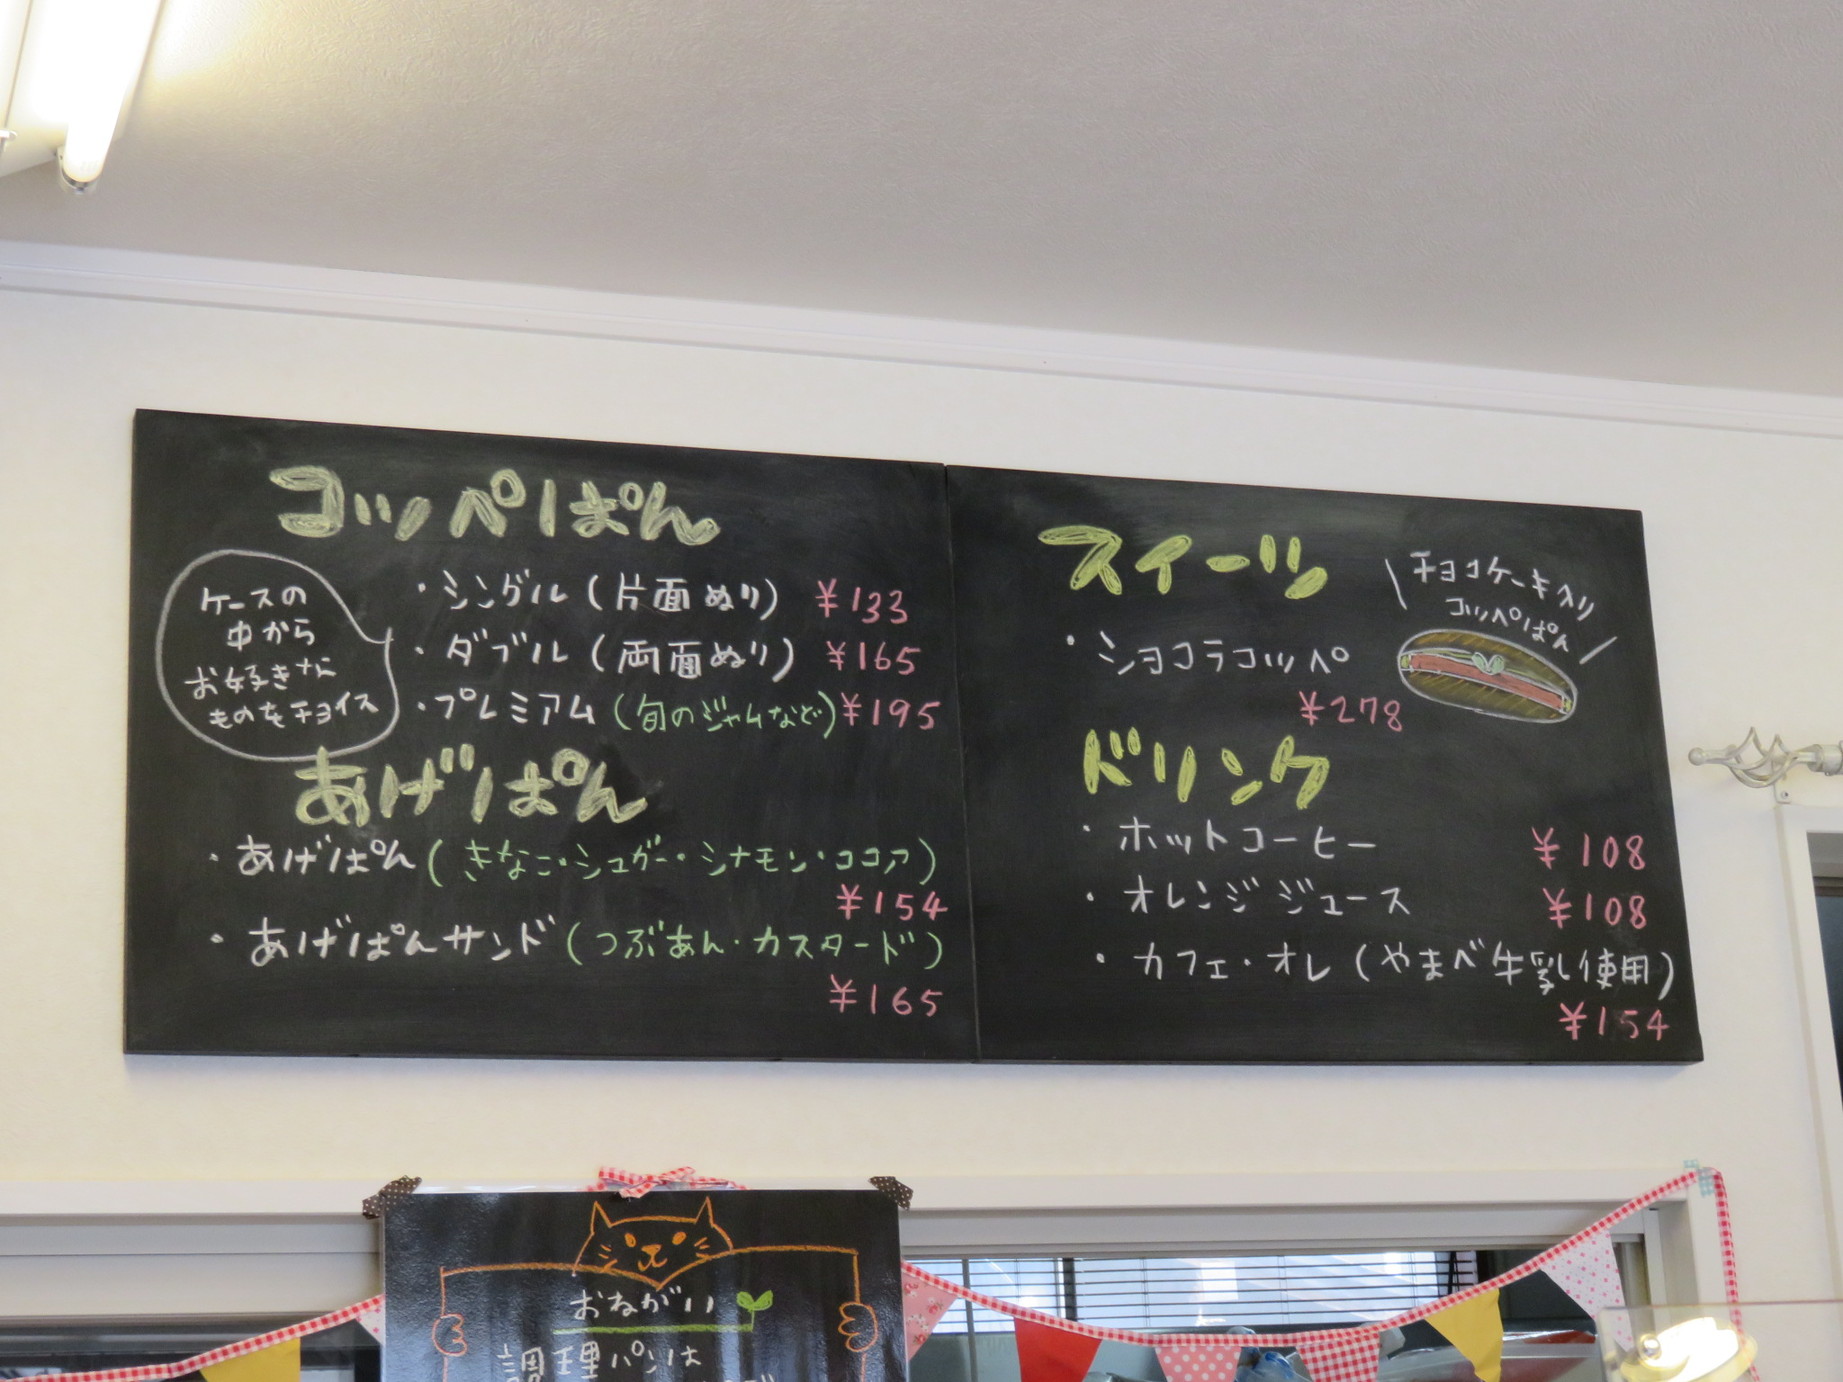 コッペぱん
ケースの
中から
お好きな
ものをチョイス
・シングル(片面ぬり) ¥133
・ダブル(両面ぬり) ¥165
・プレミアム(旬のジャムなど) ¥195
あげぱん
・あげぱん(きなこ・シュガー・シナモン・ココア)
¥154
・あげぱんサンド(つぶあん・カスタード)
¥165
スイーツ
チョコケーキ入り
コッペぱん
・ショコラコッペ
¥278
ドリンク
・ホットコーヒー ¥108
・オレンジジュース ¥108
・カフェ・オレ(やまべ牛乳使用)
¥154
おねがい
調理パンは